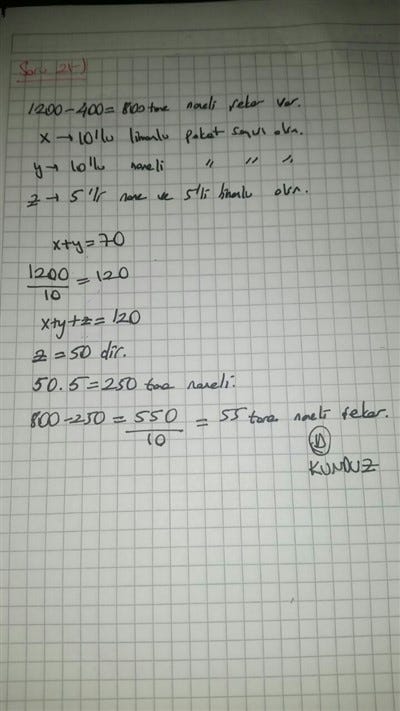 Soru 21-)
1200-400=800 tane naneli şeker var.
x → 10'lu limonlu paket sayısı olsn.
y → 10'lu naneli " " "
z → 5'li nane ve 5'li limonlu olsn.
x+y=70
1200/10 = 120
x+y+z=120
z=50 dir.
50.5=250 tane naneli.
800-250 = 550/10 = 55 tane naneli şeker.
D
KUNDUZ